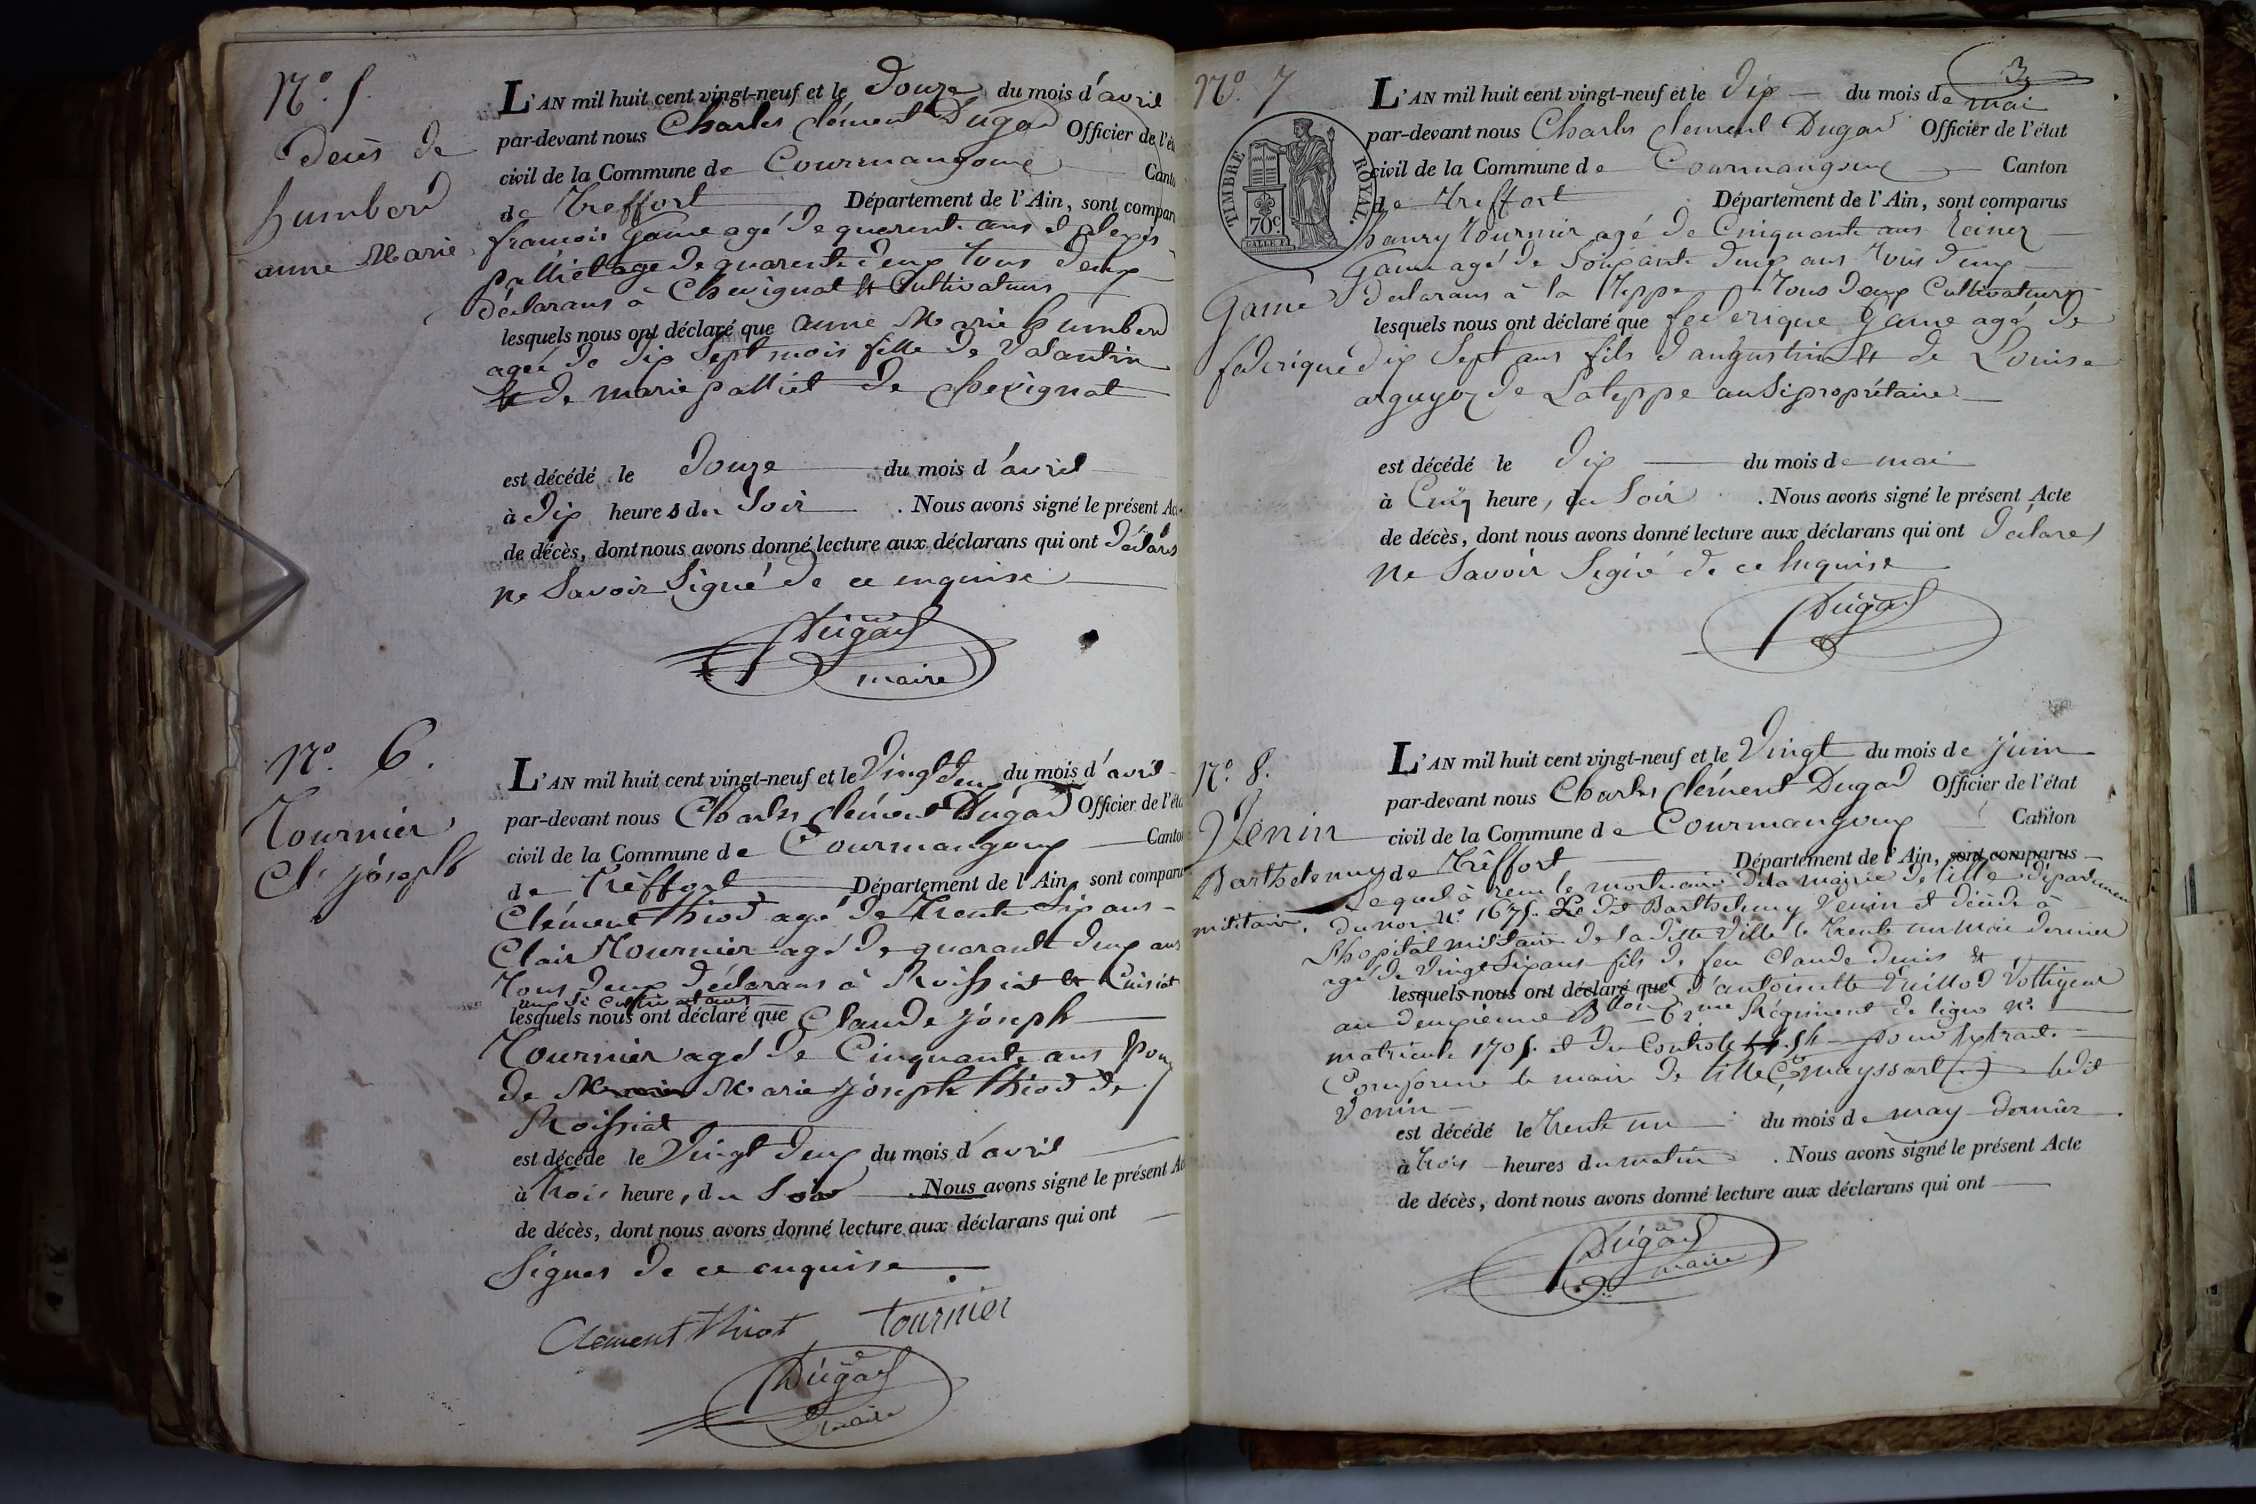 N.o 5.
Decès de
humberd
anne Marie
L'AN mil huit cent vingt-neuf et le Douze du mois d'avril
par-devant nous Charles Clément Dugad Officier de l'ét
civil de la Commune de Courmangoux Canto
de Treffort Département de l'Ain, sont compar
francois Game agé de quarente ans et alexis
palliet age de quarente deux tous deux
déclarans à Chevignat et Cultivateurs
lesquels nous ont déclaré que anne Marie humberd
agée de dix Sept mois fille de Valantin
et de marie palliet de chevignat
est décédé le douze du mois d'avril
à dix heures du Soir . Nous avons signé le présent Ac
de décès, dont nous avons donné lecture aux déclarans qui ont Déclarés
ne Savoir Signé de ce enquise
Dugad
maire
N.o 6.
Tournier
Cl. joseph
L'AN mil huit cent vingt-neuf et le Vingt deux du mois d'avril
par-devant nous Charles Clément Dugad Officier de l'éta
civil de la Commune de Courmangoux Canton
de Trèffort Département de l'Ain, sont comparu
Clément thiod agé de trente Six ans
Clair Tournier agé de quarante deux ans
tous deux déclarans à Roissiat et Cuisiat
aussi cultivateurs
lesquels nous ont déclaré que Claude joseph
Tournier agé de Cinquante ans Epoux
de Marie joseph thiod de
Roissiat
est décédé le Vingt deux du mois d'avril
à trois heure, du Soir . Nous avons signé le présent Ac
de décès, dont nous avons donné lecture aux déclarans qui ont
Signés de ce enquise
Clement thiot tournier
Dugad
maire
3
N.o 7
TIMBRE ROYAL.
70c.
Game
féderique
L'AN mil huit cent vingt-neuf et le Dix du mois de mai
par-devant nous Charles Clement Dugad Officier de l'état
civil de la Commune de Courmangoux Canton
de Treffort Département de l'Ain, sont comparus
hanry tournier agé de Cinquante ans
Game agé de Soixante deux ans tous deux
déclarans à la Teppe tous deux Cultivateurs
lesquels nous ont déclaré que féderique Game agé de
dix Sept ans fils d'augustin et de Louise
de Lateppe ausi propriétaire
est décédé le dix du mois de mai
à Cinq heure, du Soir . Nous avons signé le présent Acte
de décès, dont nous avons donné lecture aux déclarans qui ont Déclarés
ne Savoir Signé de ce Enquise
Dugad
N.o 8.
Venin
Barthelemy
militaire.
L'AN mil huit cent vingt-neuf et le Vingt du mois de juin
par-devant nous Charles Clément Dugad Officier de l'état
civil de la Commune de Courmangoux Canton
de Trèffort Département de l'Ain, sont comparus
Lequel à recu le mortuaire de la mairie de lille département
du nor N.o 1675. Le dit Barthelemy Venin et décédé à
l'hopital militaire de la ditte Ville le trente un mai dernier
agé de Vingt Six ans fils de feu Claude denis et
lesquels nous ont déclaré que d'antoinette Voltigeur
au deuxième Bton 62me Régiment de ligne N.o
matricule 1705. et du Controle pour Extrait
Conforme le maire de lille ledit
Venin
est décédé le trente un du mois de may dernier
à trois heures du matin . Nous avons signé le présent Acte
de décès, dont nous avons donné lecture aux déclarans qui ont
Dugad
maire